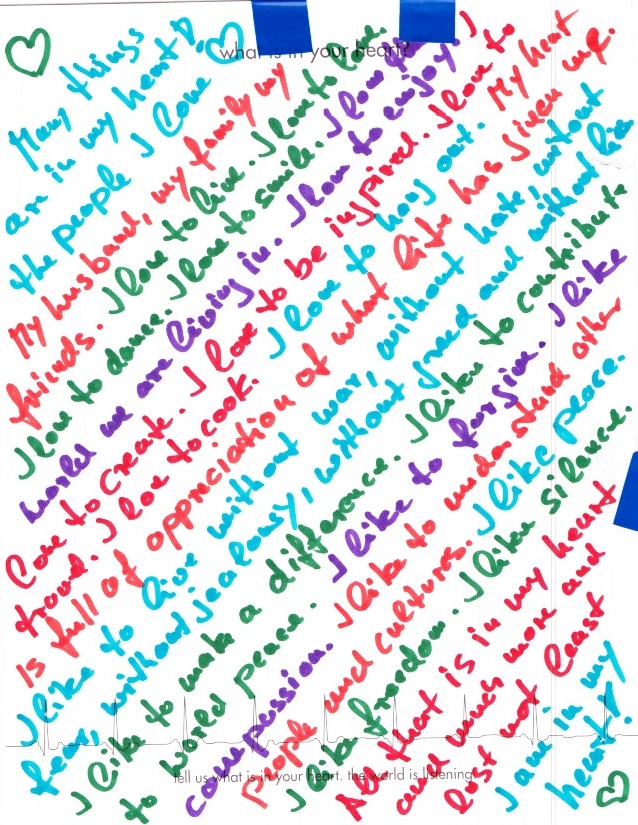 what is in your heart?
Many things
are in my heart!
the people I love
My husband, my family my
friends. I love to live. I love to love.
I love to dance. I love to smile. I love
world we are living in. I love to enjoy. I
love to create. I love to be inspired. I love to
travel. I love to cook. I love to hang out. My heart
is full of appreciation of what life has given me.
I like to live without war, without hate, without
fear, without jealousy, without greed and without
I like to make a difference. I like to contribute
to world peace. I like to forgive. I like
compassion. I like to understand other
People and cultures. I like peace.
I like freedom. I like silence.
All that is in my heart
and much more and
last not least
I am in my
heart!
tell us what is in your heart. the world is listening.